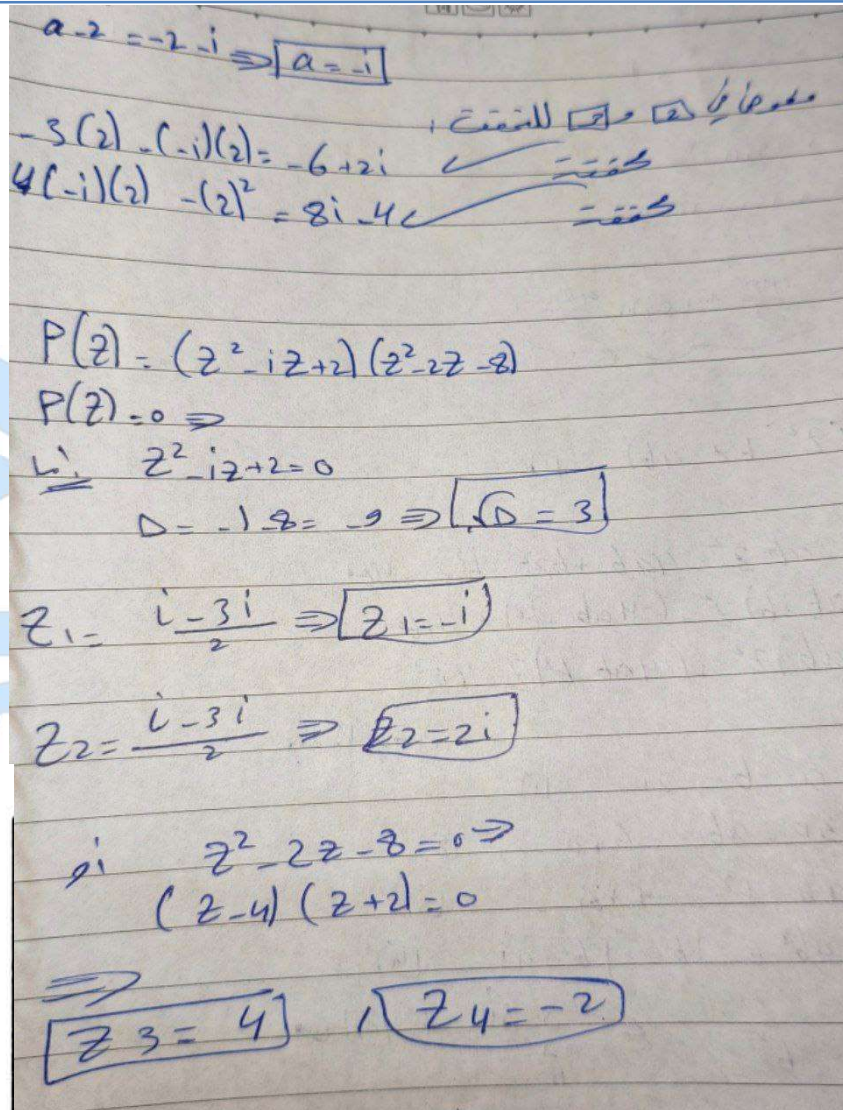 a - 2 = -2 - i ⇒ a = -i
نعوضها في 2 و 3 للتحقق:
-3(2) - (-i)(2) = -6 + 2i ✓ محققة
4(-i)(2) - (2)² = 8i - 4 ✓ محققة
P(z) = (z² - iz + 2)(z² - 2z - 8)
P(z) = 0 ⇒
إما z² - iz + 2 = 0
D = -1 - 8 = -9 ⇒ √D = 3
z1 = (i - 3i)/2 ⇒ z1 = -i
z2 = (i - 3i)/2 ⇒ z2 = 2i
أو z² - 2z - 8 = 0 ⇒
(z - 4)(z + 2) = 0
⇒
z3 = 4 , z4 = -2